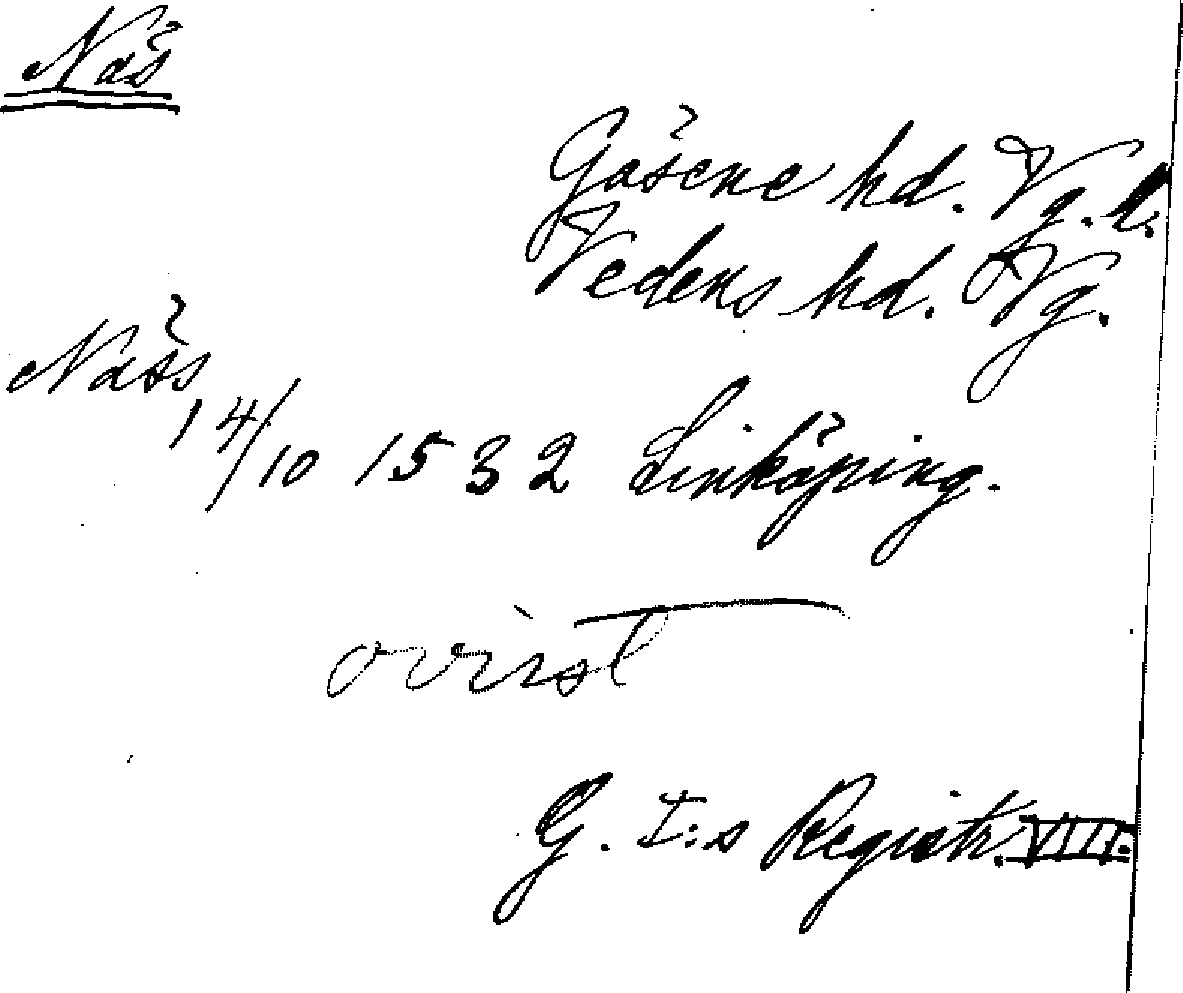 Näs
Gäsene hd. Vg. l.
Vedens hd. Vg.
Näss
14/10 1532 Linköping.
ovisst
G. I:s Registr. VIII.